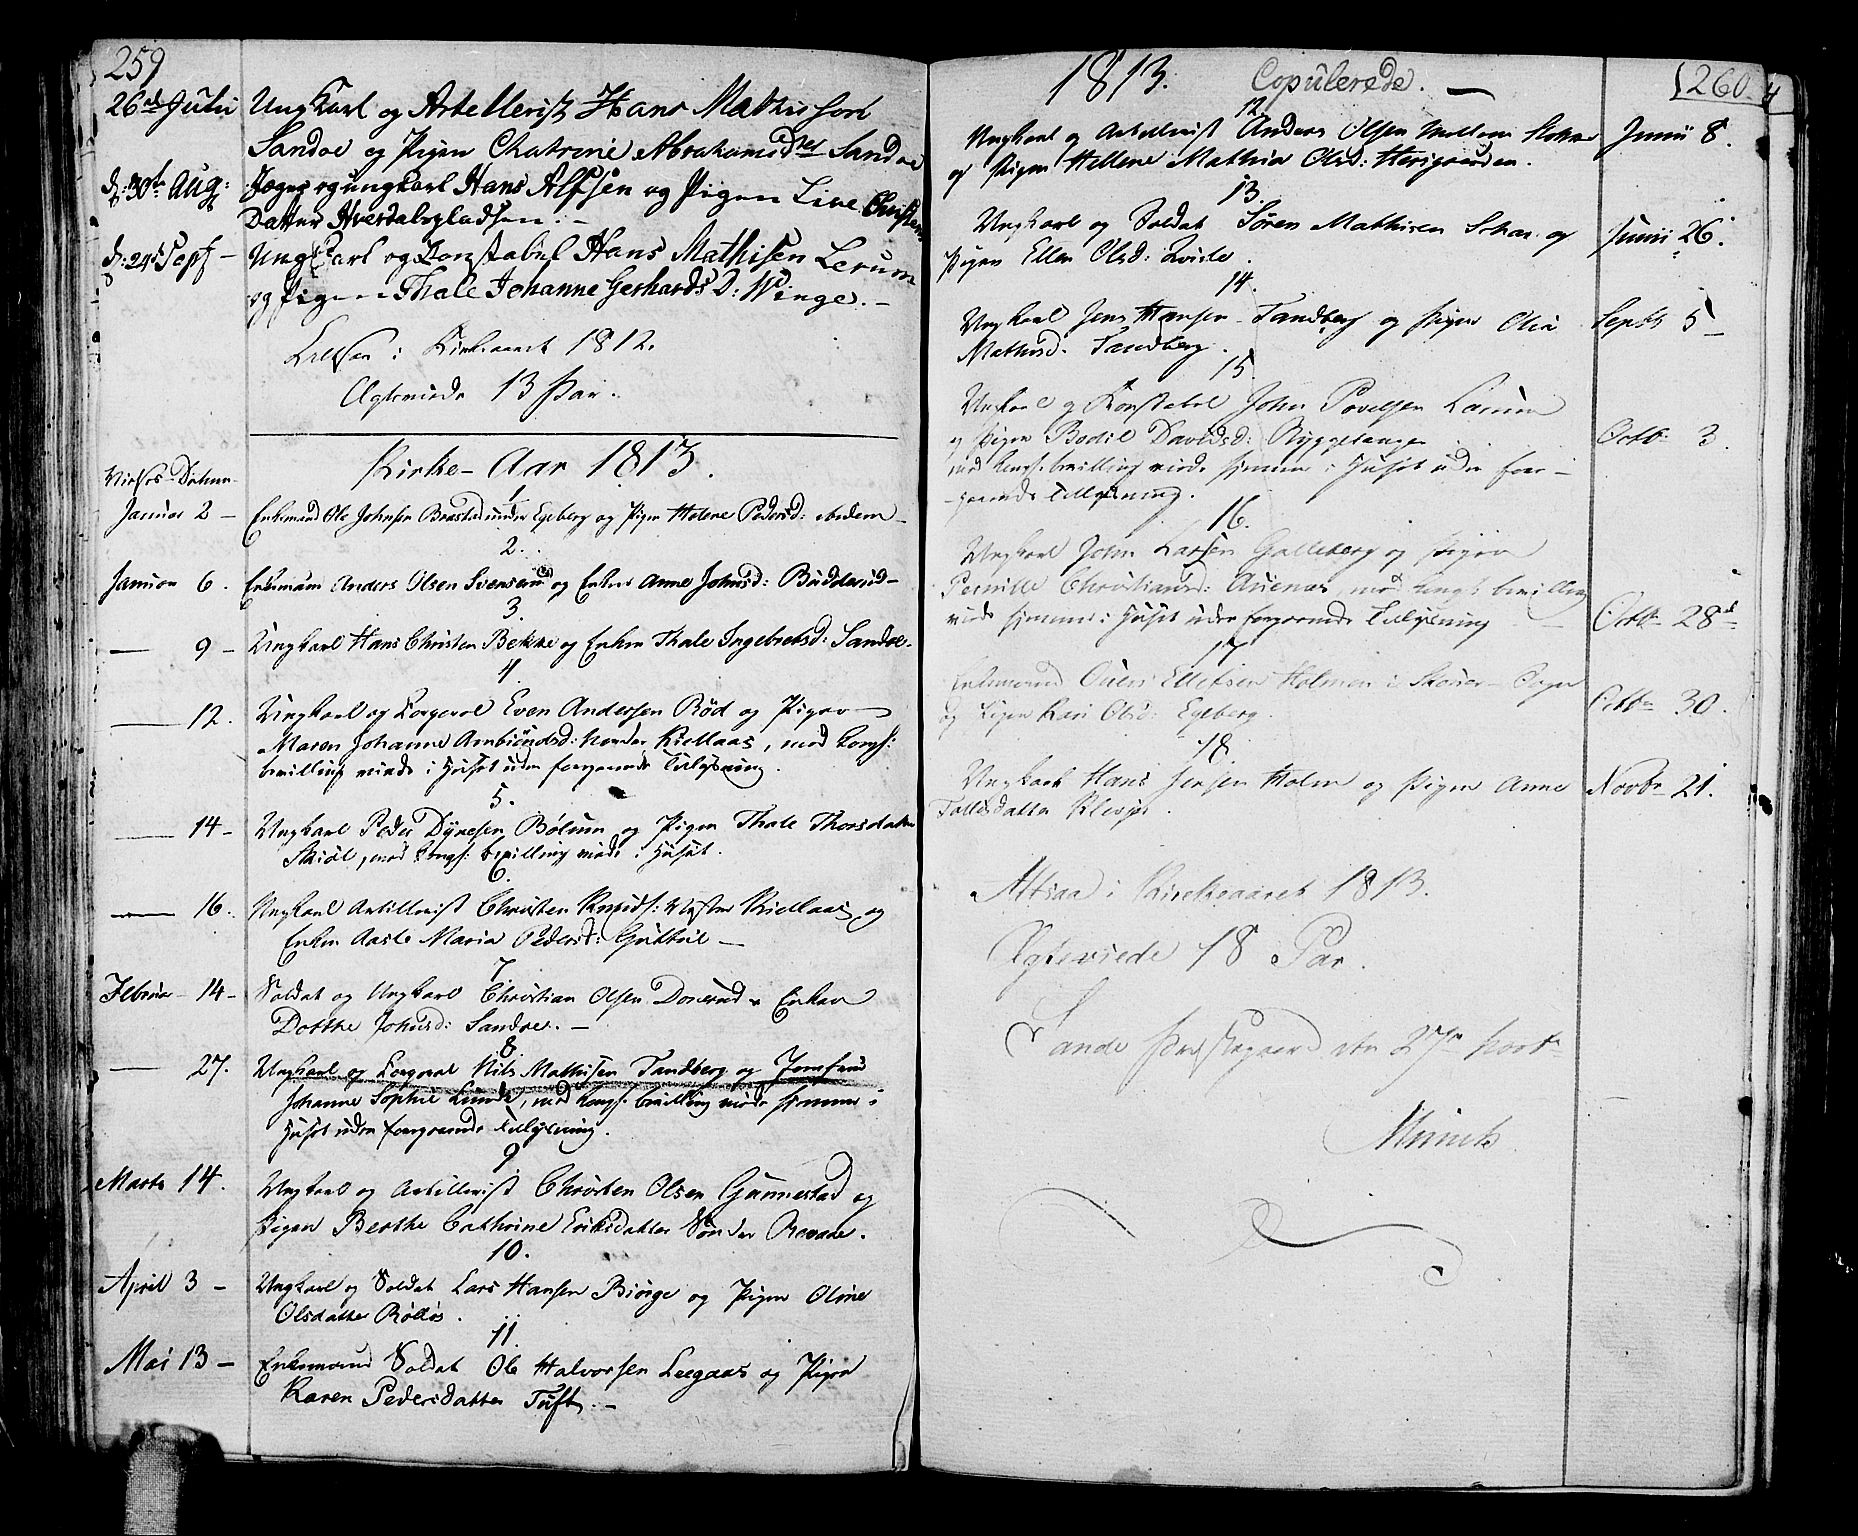 259
26de Juli Ung Karl og Artellerist Hans Mathissen
Sandoe og Pigen Chatrine Abrahamsdtr Sandoe
d: 30te Aug: Jæger og ungkarl Hans Alfsen og Pigen Live Christens
Datter Hvesdalspladsen. -
d: 24de Sept - Ung Karl og Konstabel Hans Mathisen Lerum
og Pigen Thale Johanne Gerhards D: Winge. -
Altsaa i Kirkeaaret 1812.
Ægteviede 13 Par.
Kirke-Aar 1813.
Vielses-Datum
1
Januar 2 - Enkemand Ole Johnsen Brastad under Egeberg og Pigen Helene Pedersd: ibidem -
2.
Januar 6. Enkemand Anders Olsen Svensrud og Enken Anne Johnsd: Budderud -
3.
— 9 - Ungkarl Hans Christen Bekke og Enken Thale Ingebretsd: Sandoe.
4
— 12. Ungkarl og Corporal Even Andersen Röd og Pigen
Maren Johanne Ambiöndsd: Nordre Kiellaas, med Kongs:
bevilling viede i Huset uden foregaaende Tillysning.
5.
— 14 - Ungkarl Peder Dyresen Bölum og Pigen Thale Thorsdatter
Skiöl, med Kongs: bevilling viede i Huset.
6.
— 16. Ungkarl Artillerist Christen Knuds: Vestre Kiellaas og
Enken Aaste Maria Pedersd: Guttul —
7
Februar - 14 - Soldat og Ungkarl Christian Olsen Dorrud & Enken
Dorthe Johnsd: Sandoe. —
8
— 27. Ungkarl og Corporal Nils Mathisen Tandberg og Jomfrue
Johanne Sophie Lunde, med Kongs: bevilling viede hjemme i
Huset uden foregaaende Tillysning.
9
Marts 14. Ungkarl og Artillerist Christen Olsen Gunnestad og
Pigen Berthe Cathrine Eriksdatter Sönder Revaae.
10.
April 3 - Ungkarl og Soldat Lars Hansen Biörge og Pigen Oline
Olsdatter Rölles.
11.
Mai 13 - Enkemand Soldat Ole Halvorsen Leegaas og Pigen
Karen Pedersdatter Tuft. -
1813. Copulerede. — 260
12.
Ungkarl og Artillerist Anders Olsen Mellem Skaar Junii 8.
og Pigen Hellene Mathia Olsd: Haugranden.
13.
Ungkarl og Soldat Sören Mathisen Schar og Junii 26.
Pigen Ellen Olsd: Qvisle.
14.
Ungkarl Jens Hansen Tandberg og Pigen Olia Septb 5 -
Mathisd. Tandberg.
15
Ungkarl og Konstabel John Povelsen Lerum
og Pigen Bodil Davidsd: Ryggetangen Octb: 3.
med Kongs: bevilling viede hjemme i Huset uden fore-
-gaaende Tillysning.
16.
Ungkarl John Larsen Galleberg og Pigen
Pernille Christiansd: Auenas, med Kongl: bevilling
viede hjemme i Huset uden foregaaende Tillysning — Octb 28de
17
Enkemand Ouen Ellefsen Holmen i Skouer - Sogn
og Pigen Kari Olsd: Egeberg. Octbr 30.
18.
Ungkarl Hans Jensen Holm og Pigen Anne Novbr 21.
Tollesdatter Klevjer.
Altsaa i Kirkeaaret 1813.
Ægteviede 18 Par.
Sande Præstegaard den 27de
Munch